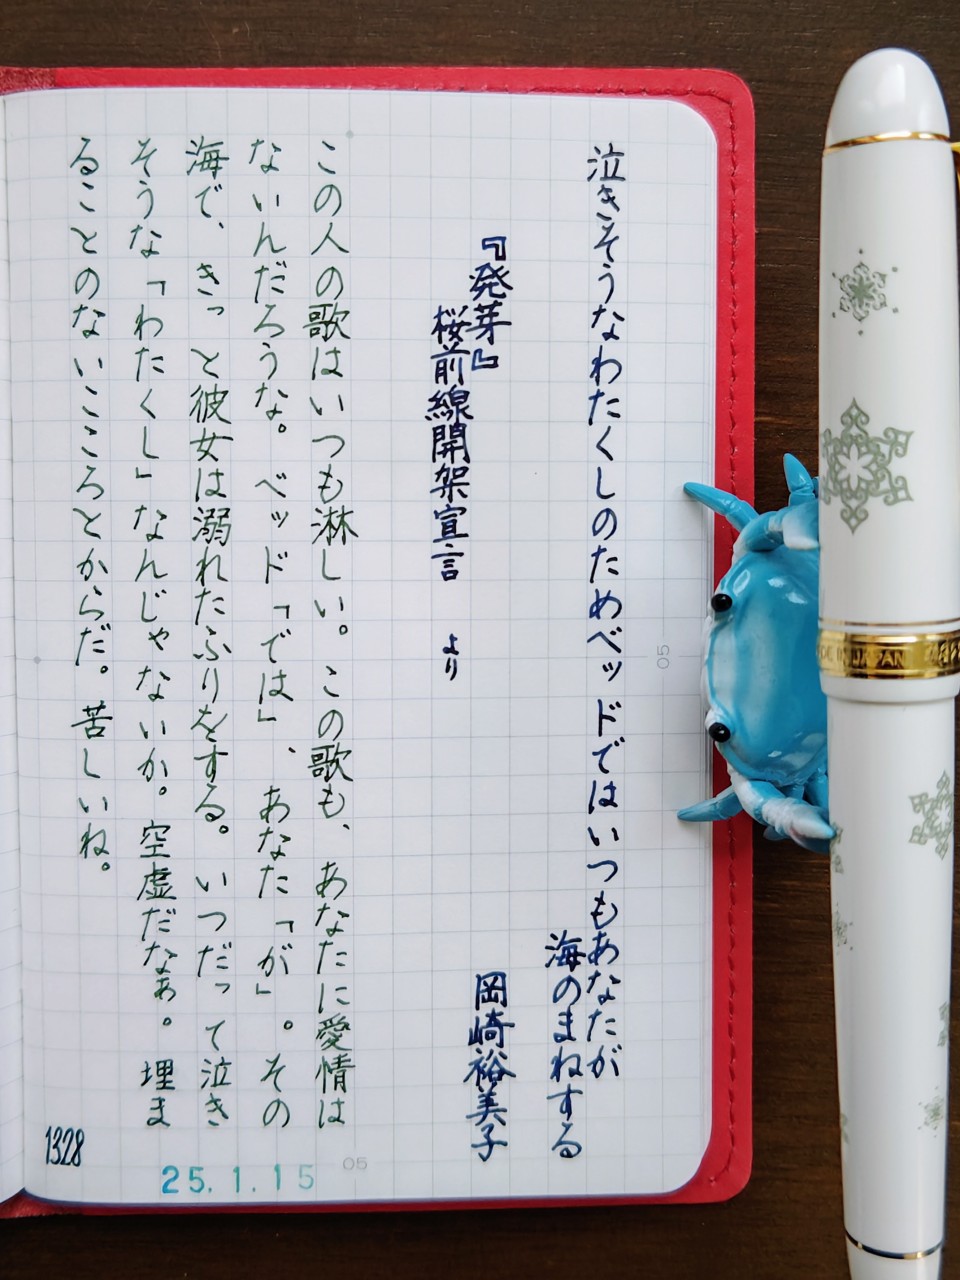 泣きそうなわたくしのためベッドではいつもあなたが
海のまねする
岡崎裕美子
『発芽』
桜前線開架宣言 より
この人の歌はいつも淋しい。この歌も、あなたに愛情は
ないんだろうな。ベッド「では」、あなた「が」。その
海で、きっと彼女は溺れたふりをする。いつだって泣き
そうな「わたくし」なんじゃないか。空虚だなぁ。埋ま
ることのないこころとからだ。苦しいね。
1328
25.1.15
05
05